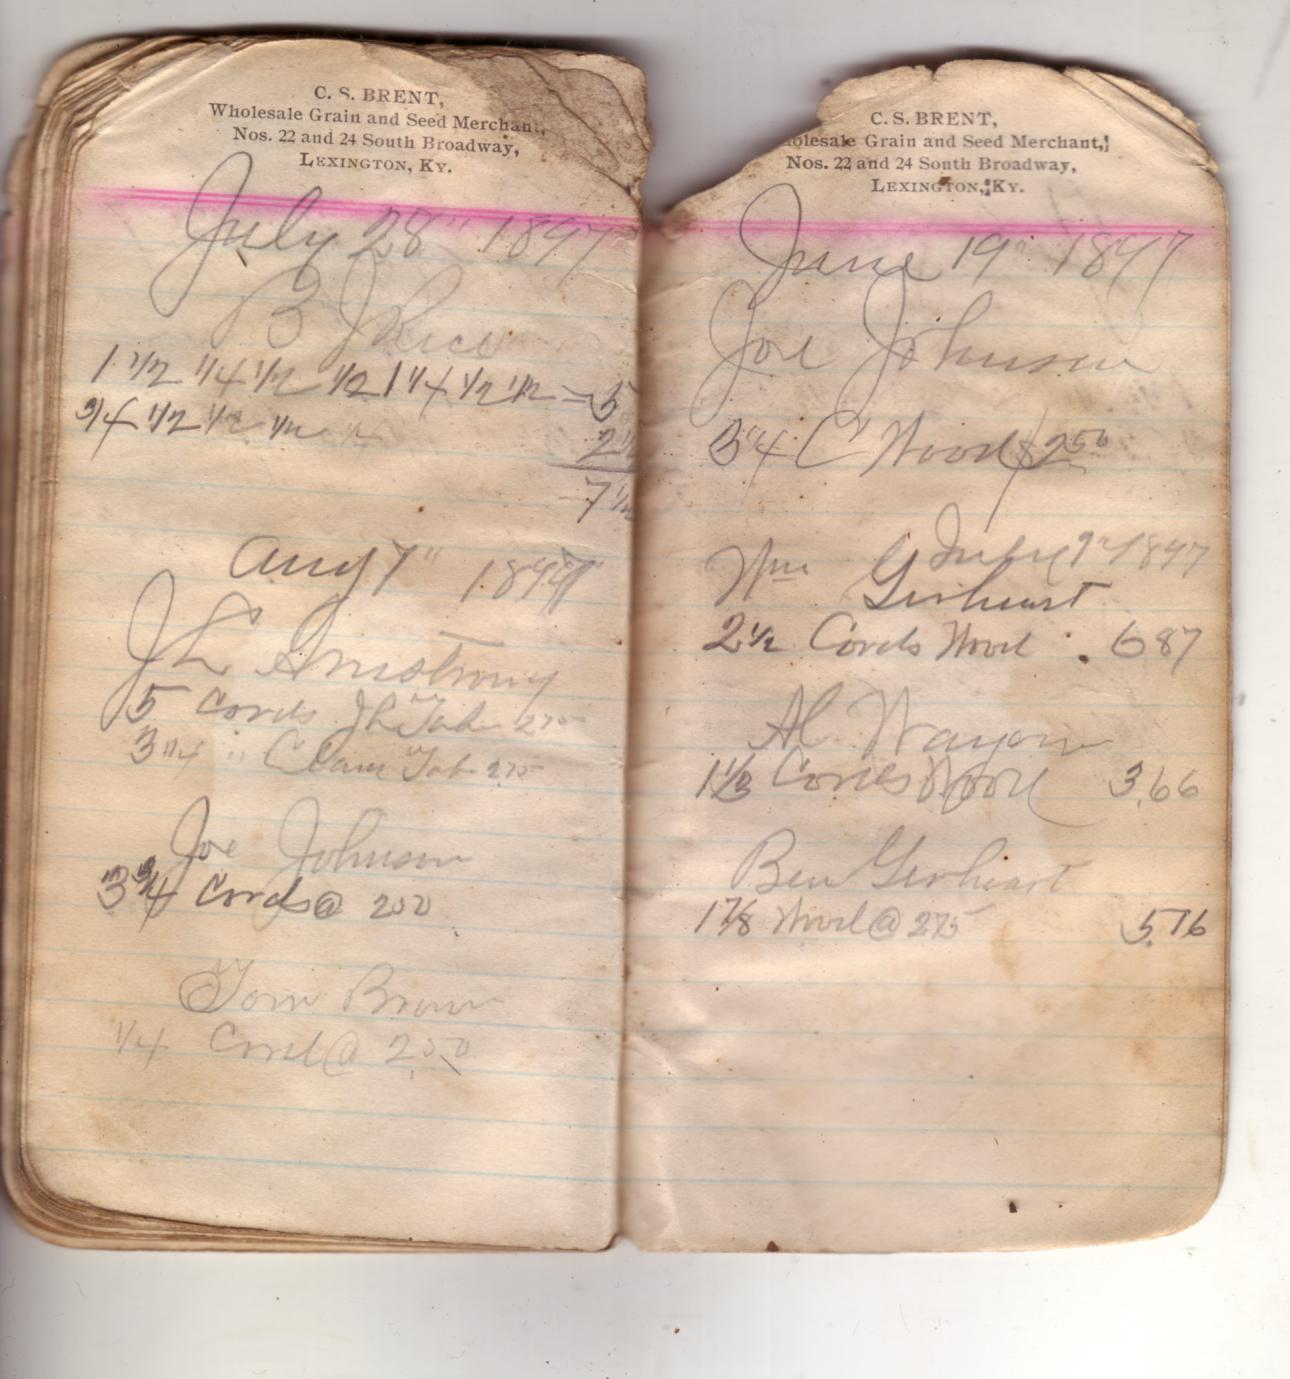 C. S. BRENT,
Wholesale Grain and Seed Merchant,
Nos. 22 and 24 South Broadway,
LEXINGTON, KY.
July 28" 1897
B J Rice
1 1/2 1/4 1/2 1/2 1 1/4 1/2 1/2 = 5
3/4 1/2 1/2 1/2 1/4
2 1/2
7 1/2
Aug 7" 1897
J L Armstrong
5 Cords J L 275
3 1/4 " 275
Joe Johnson
3 3/4 Cords @ 250
Tom Brown
1/4 Cord @ 2.50
C. S. BRENT,
olesale Grain and Seed Merchant,
Nos. 22 and 24 South Broadway,
LEXINGTON, KY.
June 19" 1897
Joe Johnson
3/4 C Wood $ 2 50
July 9" 1897
Wm Gerheart
2 1/2 Cords Wood . 6 87
Al
1 1/3 Cords Wood 3,66
Ben Gerheart
1 7/8 Wood @ 275 5.16